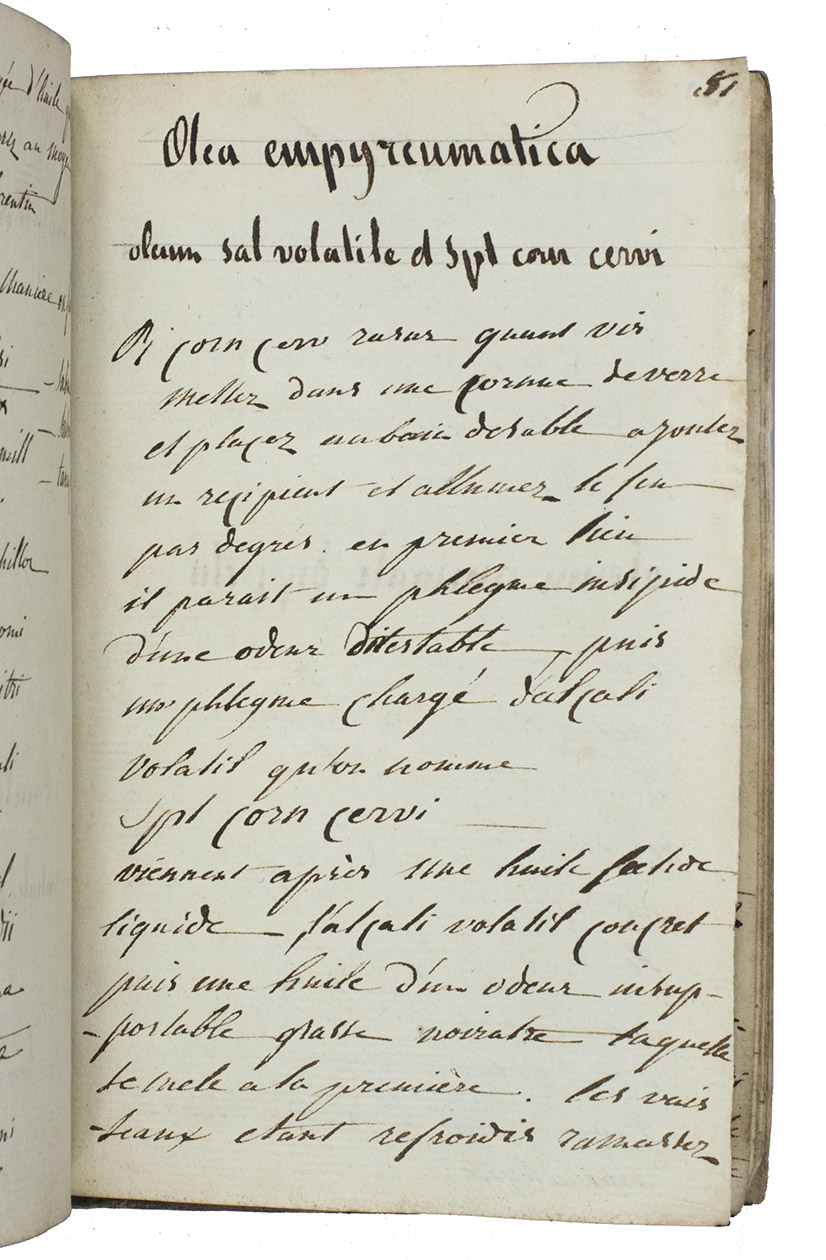 81
Olea empyreumatica
oleum sal volatile et Spt corn cervi
R/ corn cerv rasur quant vis
mettez dans une cornue de verre
et placez au bain de sable ajoutez
un recipient et allumez le feu
par degrés. en premier lieu
il parait un phlegme insipide
d'une odeur ditestable, puis
un phlegme chargé d'alcali
volatil qu'on nomme
Spt corn cervi
viennent après une huile foetide
liquide – l'alcali volatil concret
puis une huile d'un odeur insup-
-portable grasse noiratre laquelle
se mele a la première. les vais
-seaux etant refroidis ramassez